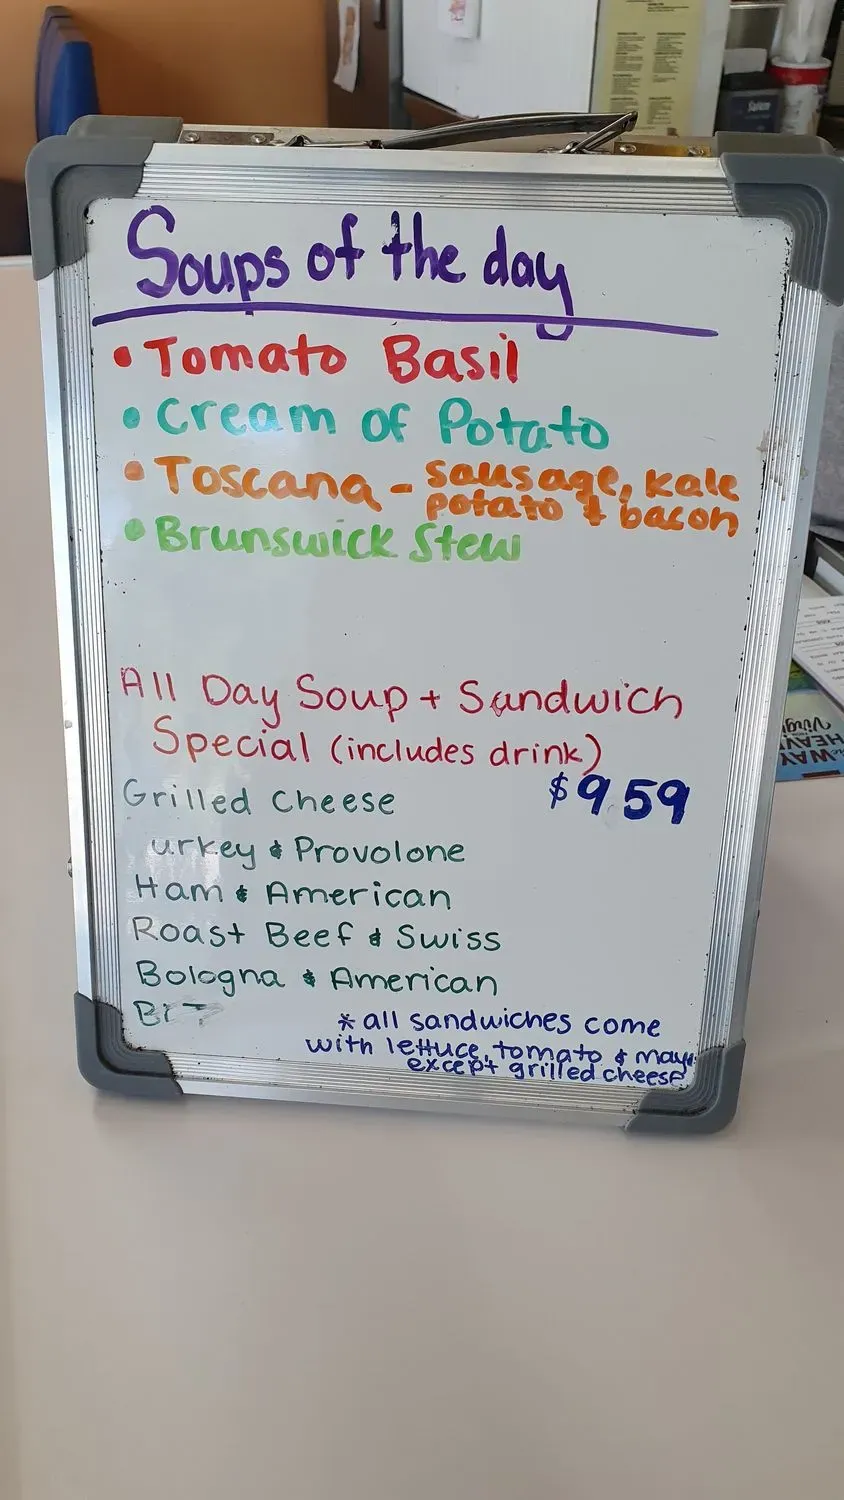 Soups of the day
• Tomato Basil
• Cream of Potato
• Toscana - sausage, kale
potato & bacon
• Brunswick Stew
All Day Soup + Sandwich
Special (includes drink)
Grilled Cheese $9 59
urkey & Provolone
Ham & American
Roast Beef & Swiss
Bologna & American
* all sandwiches come
with lettuce, tomato & mayo
except grilled cheese